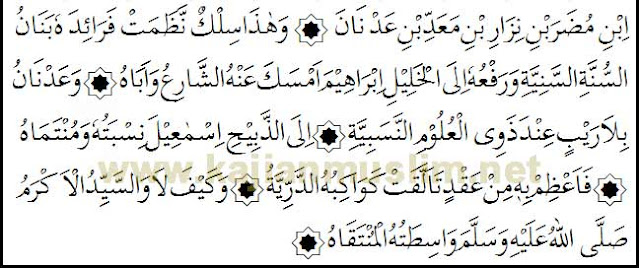 اِبْنِ مُضَرَبْنِ نِزَارِ بْنِ مَعَدِّبْنِ عَدْنَانَ ۞ وَهٰذَا سِلْكٌ نَظَّمَتْ فَرَائِدَهُ بَنَانُ
السُّنَّةِ السَّنِيَّةِ وَرَفْعُهُ اِلَى الْخَلِيْلِ اِبْرَاهِيْمَ اَمْسَكَ عَنْهُ الشَّارِعُ وَاَبَاهُ ۞ وَعَدْنَانُ
بِلَارَيْبٍ عِنْدَ ذَوِى الْعُلُوْمِ النَّسَبِيَّةِ ۞ اِلَى الذَّبِيْحِ اِسْمٰعِيْلَ نِسْبَتُهُ وَمُنْتَمَاهُ
www.kajianmuslim.net
۞ فَاَعْظِمْ بِهِ مِنْ عَقْدٍ تَاَلَّقَتْ كَوَاكِبُهُ الدُّرِّيَّةُ ۞ وَكَيْفَ لَا وَالسَّيِّدُ الْاَكْرَمُ
صَلَّى اللهُ عَلَيْهِ وَسَلَّمَ وَاسِطَتُهُ الْمُنْتَقَاهُ ۞